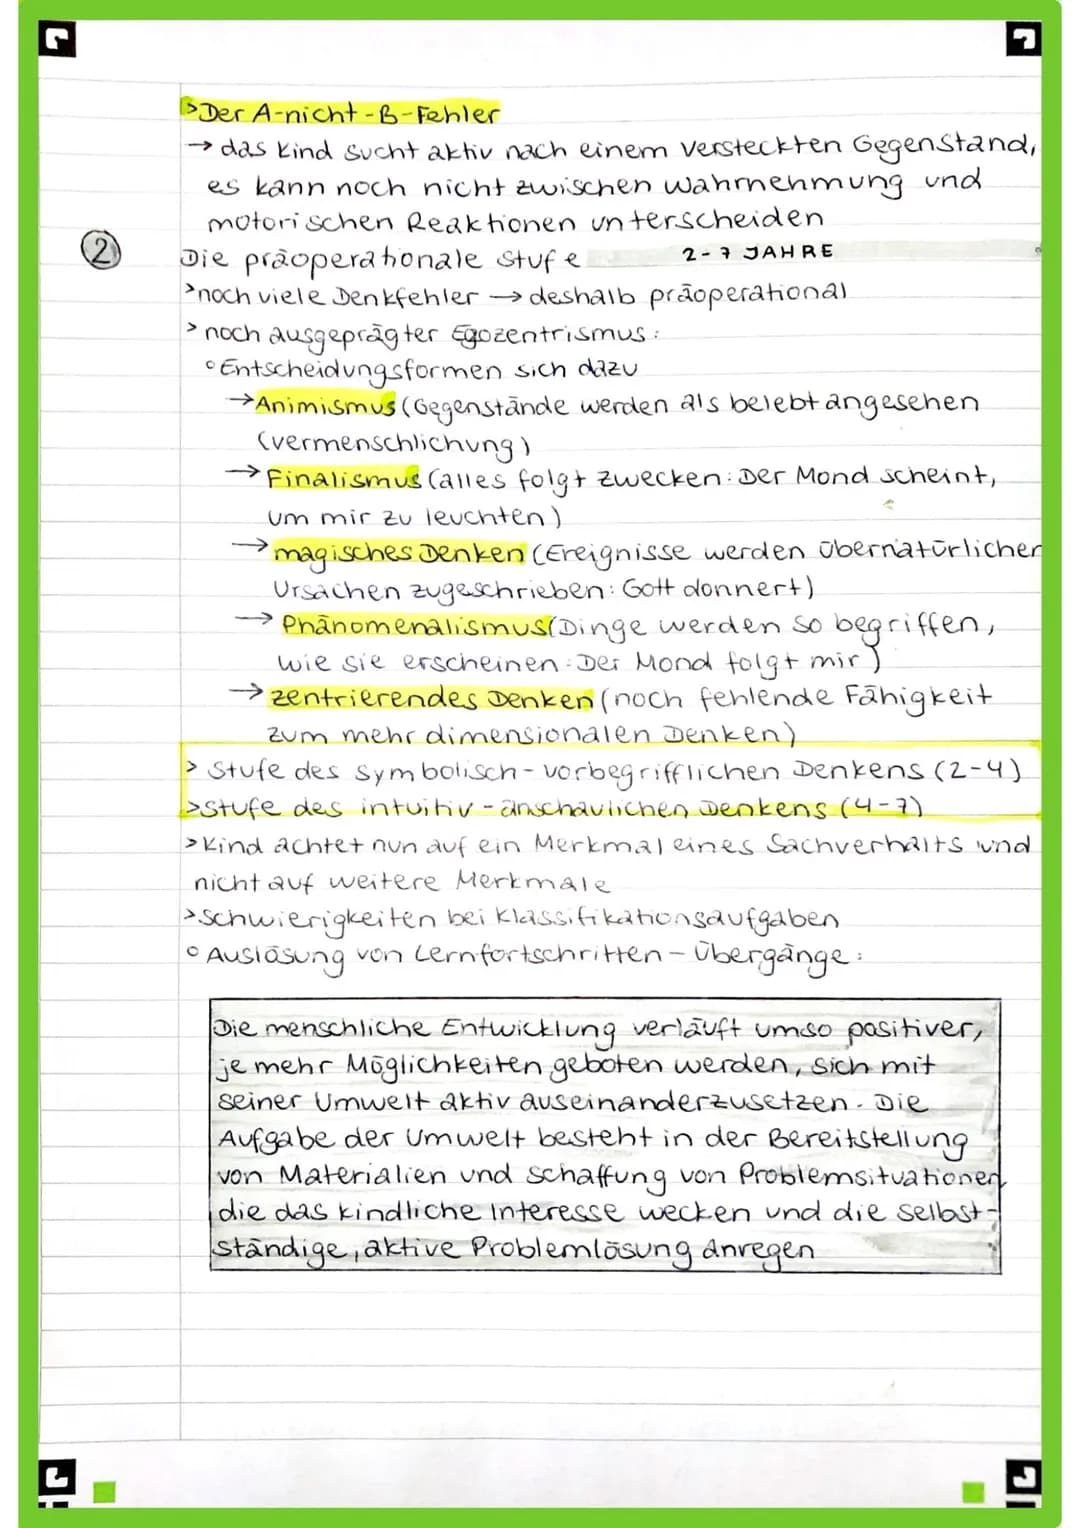 >Der A-nicht-B-Fehler
→ das Kind sucht aktiv nach einem versteckten Gegenstand,
es kann noch nicht zwischen Wahrnehmung und
motorischen Reaktionen unterscheiden
② Die präoperationale Stufe 2-7 JAHRE
>noch viele Denkfehler → deshalb präoperational
> noch ausgeprägter Egozentrismus:
° Entscheidungsformen sich dazu
→ Animismus (Gegenstände werden als belebt angesehen
(Vermenschlichung)
→ Finalismus (alles folgt Zwecken: Der Mond scheint,
um mir zu leuchten)
→ magisches Denken (Ereignisse werden übernatürlicher
Ursachen zugeschrieben: Gott donnert)
→ Phänomenalismus (Dinge werden so begriffen,
wie sie erscheinen: Der Mond folgt mir)
→ zentrierendes Denken (noch fehlende Fähigkeit
zum mehrdimensionalen Denken)
> Stufe des symbolisch-vorbegrifflichen Denkens (2-4)
>Stufe des intuitiv-anschaulichen Denkens (4-7)
>Kind achtet nun auf ein Merkmal eines Sachverhalts und
nicht auf weitere Merkmale
>Schwierigkeiten bei Klassifikationsaufgaben
° Auslösung von Lernfortschritten - Übergänge:
Die menschliche Entwicklung verläuft umso positiver,
je mehr Möglichkeiten geboten werden, sich mit
seiner Umwelt aktiv auseinanderzusetzen. Die
Aufgabe der Umwelt besteht in der Bereitstellung
von Materialien und Schaffung von Problemsituationen
die das kindliche Interesse wecken und die selbst-
ständige, aktive Problemlösung anregen